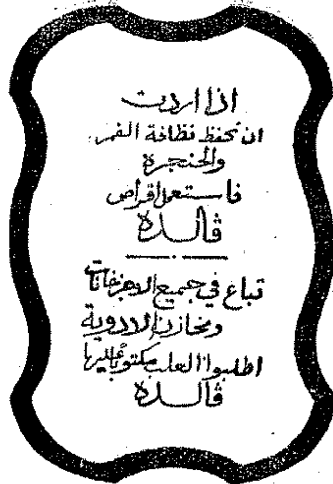 اذا اردت
ان تحفظ نظافة الفم
والحنجرة
فاستعمل اقراص
ڤالده
تباع في جميع الاجزخانات
ومخازن الادوية
اطلبوا العلب مكتوبا عليها
ڤالده